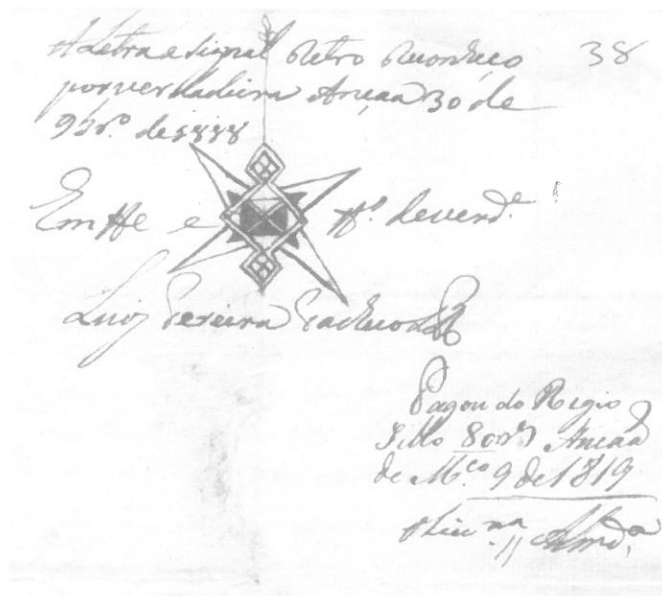 A Letra e signal Retro Reconheço
por verdadeira Ançaã 30 de
9br.º de 1818
Em tte e tt.º de verd.e
Luiz Pereira Pacheco
38
Pagou do Regio
Sello 80 rs Ançaã
de M.ço 9 de 1819